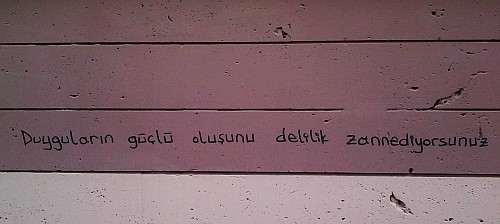 Duyguların güçlü oluşunu delilik zannediyorsunuz